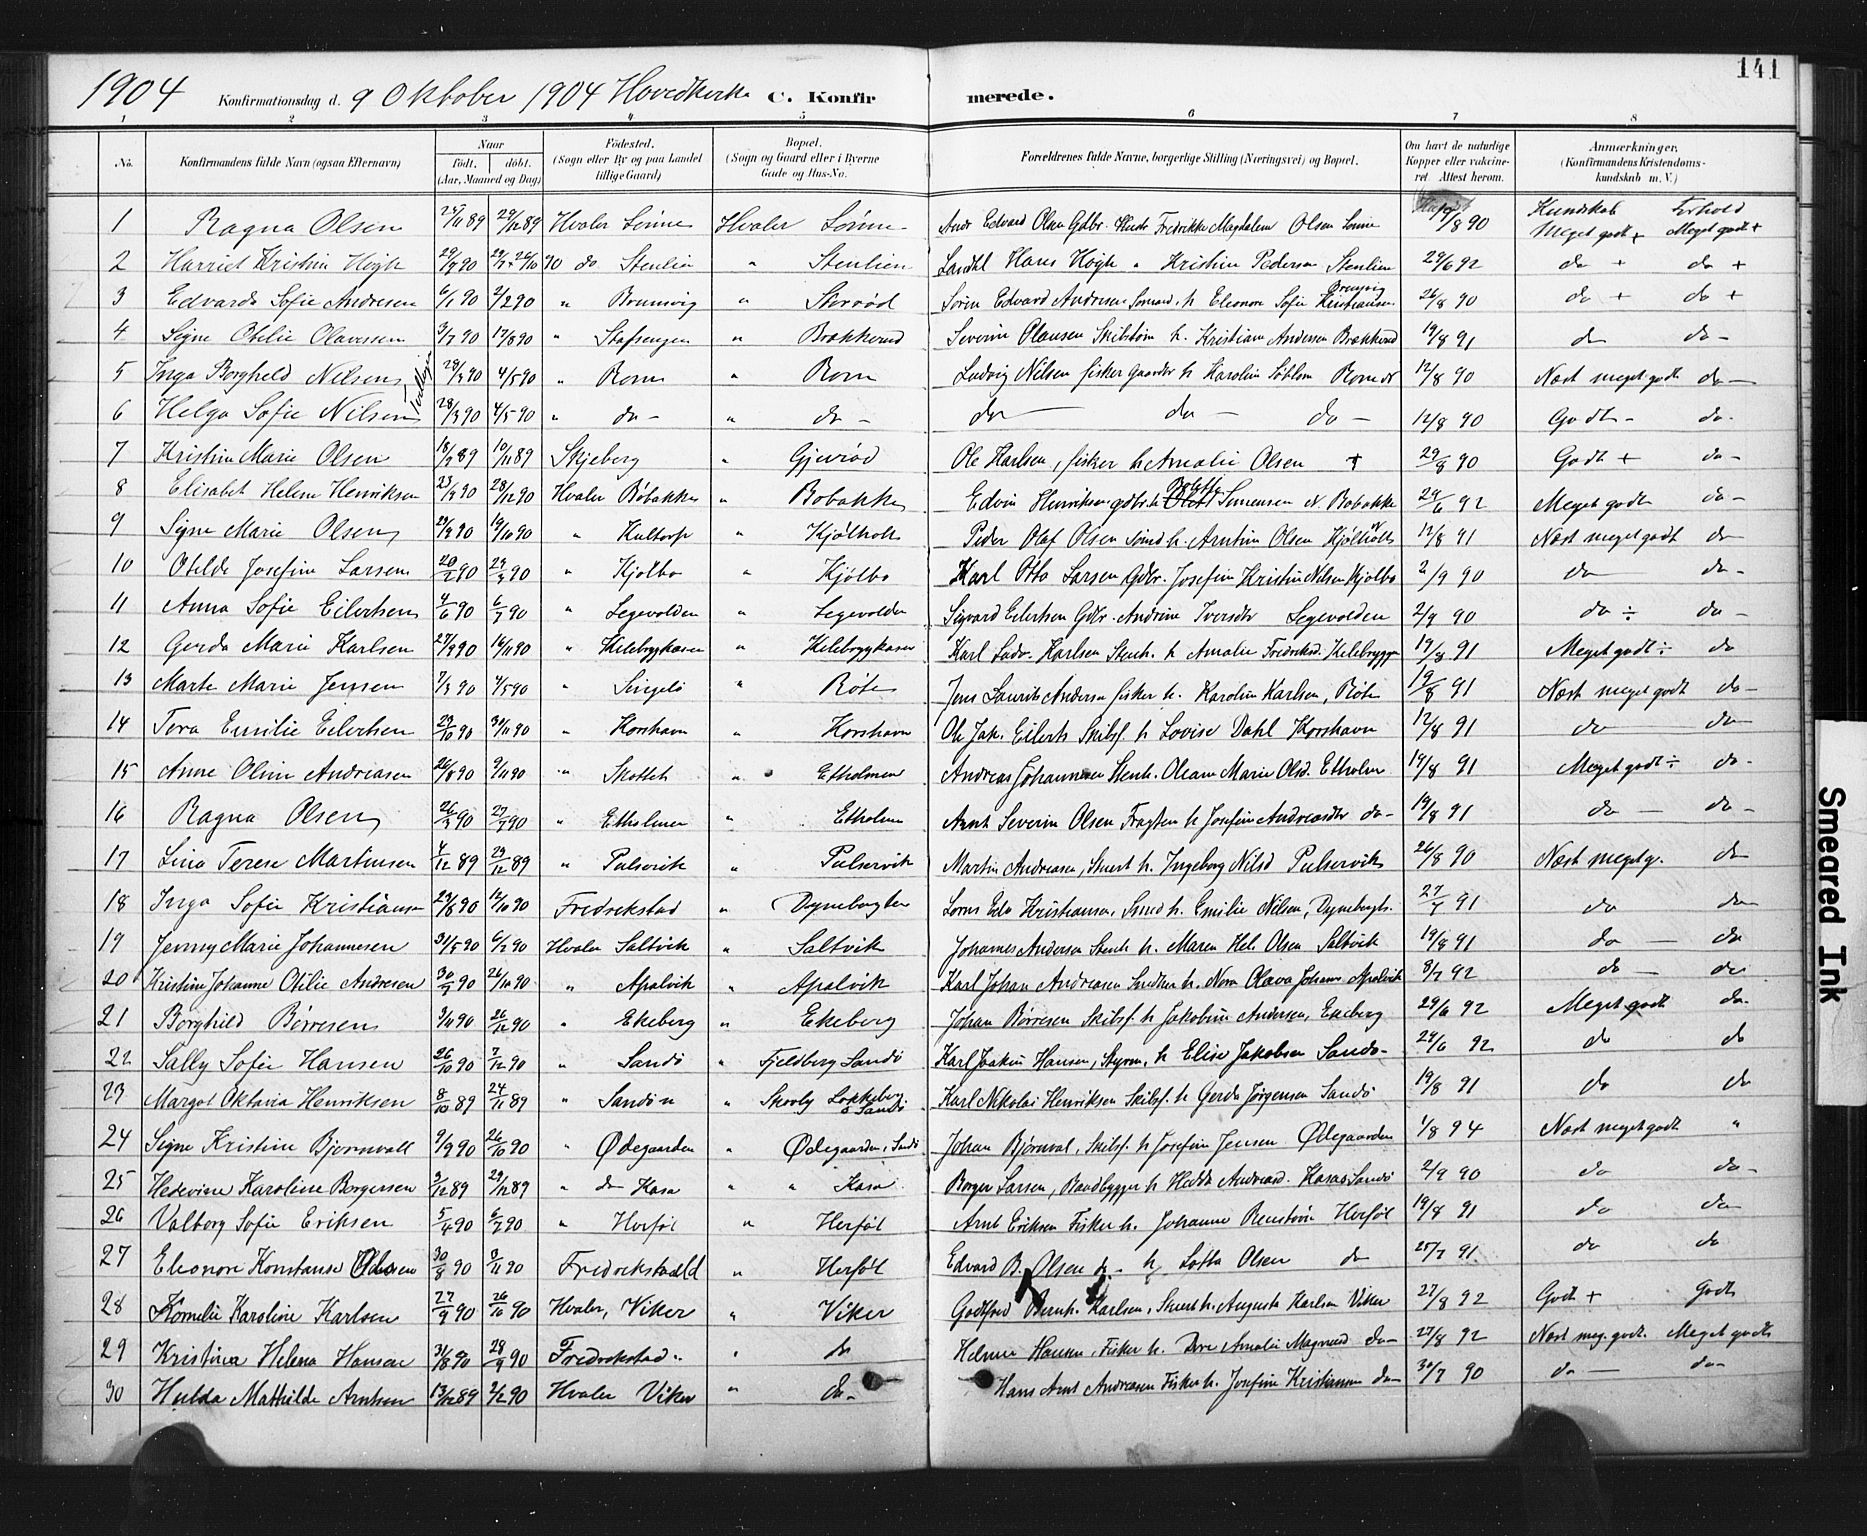 141
1904 Konfirmationsdag d. 9 Oktober 1904 Hovedkirke C. Konfir merede.
1 2 3 4 5 6 7 8
No. Konfirmandens fulde Navn (ogsaa Efternavn) Naar født, døbt. (Aar, Maaned og Dag) Fødested. (Sogn eller By og paa Landet tillige Gaard) Bopæl. (Sogn og Gaard eller i Byerne Gade og Hus-No. Forældrenes fulde Navne, borgerlige Stilling (Næringsvei) og Bopæl. Om havt de naturlige Kopper eller vakcineret. Attest herom. Anmærkninger. (Konfirmandens Kristendomskundskab m. V.)
Kundskab Forhold
1 Ragna Olsen 29/12 89 Hvaler Hvaler Edvard Olsen Gdbr. Fredrikke Magdalene Olsen 19/8 90 Meget godt + Meget godt +
2 Harriet Kristine Høgh 29/7 90 do Stenlien " Stenlien Hans Høgh Kristine Pedersen Stenlien 29/6 92 do + do +
3 Edvarda Sofie Andresen 6/1 90 2/2 90 " " Skrøød Søren Edvard Andresen h. Eleonore Sofie Kristiansen 26/8 90 do + do +
4 Signe Otilie Olavesen 3/7 90 17/8 90 " Stafsengen " Brækkerød Severin Olausen h. Kristiane Andersen Brækkerød 19/8 91 do do -
5 Inga Borghild Nilsen 28/3 90 4/5 90 " Rom " Rom Ludvig Nilsen fisker h Karolin Rom 12/8 90 Næst meget godt do -
6 Helga Sofie Nilsen Tvillinger 28/3 90 4/5 90 " do - " do - do - do - do - 12/8 90 Godt - do -
7 Kristine Marie Olsen 10/11 89 Skjeberg " Ole Karlsen, fisker h Amalie Olsen + 29/8 90 Godt + do -
8 Elisabet Helene Henriksen 28/12 90 Hvaler Bobakke " Bobakke Edvin Henriksen gdbr. h Simensen N. Bobakke 29/6 92 Meget godt do -
9 Signe Marie Olsen 19/10 90 " " Kjølholt Peder Olaf Olsen h. Arntine Olsen Kjølholt 12/8 91 Næst meget godt do
10 Otilde Josefine Larsen 20/2 90 " Kjølbo " Kjølbo Karl Otto Larsen Gdbr. Josefine Kristine Nilsen Kjølbo 2/9 90 do do -
11 Anna Sofie Eilertsen 4/6 90 6/7 90 " Legevolden " Legevolden Sigvard Eilertsen Gdbr. Andrine Legevolden 2/9 90 do ÷ do -
12 Gerda Marie Karlsen 27/9 90 16/11 90 " Kilebrygkasen " Kilebrygkasen Karl Ludv. Karlsen Stenh. h Amalie Fredriksd. Kilebrygga 19/8 91 Meget godt ÷ do
13 Marte Marie Jensen 7/3 90 4/5 90 " Singelø " Røte Jens Laurits Andersen fisker h. Karoline Karlsen, Røte 19/8 91 Næst meget godt do -
14 Tora Emilie Eilertsen 29/10 90 " Korshavn " Korshavn Ole Jak. Eilerts Skibsf. h Lovise Dahl Korshavn 12/8 91 do do
15 Anne Oline Andreasen 26/8 90 9/11 90 " " Etholmen Andreas Johannesen Stenh. Oleane Marie Olsd. Etholm 19/8 91 Meget godt ÷ do -
16 Ragna Olsen 90 90 " Etholmen " Etholmen Arnt Severin Olsen h Josefine Andreasdtr do - 19/8 91 do - do -
17 Lina Terese Martinsen 4/12 89 29/12 89 " Pulservik " Pulservik Martin Andreasen, h. Ingeborg Nilsd Pulservik 26/8 90 Næst meget g. do
18 Inga Sofie Kristiansen 29/8 90 12/10 90 Fredrikstad " Edv Kristiansen, Smed h. Emilie Nilsen, 91 do do
19 Jenny Marie Johannesen 31/5 90 6/7 90 Hvaler Saltvik " Saltvik Johannes Andersen Stenh h. Maren Hel. Olsen Saltvik 19/8 91 do - do
20 Kristine Johanne Otilie Andresen 90 26/10 90 " Apalvik " Apalvik Karl Johan Andreasen h. Nora Olava Johans. Apalvik 8/7 92 do - do
21 Borghild Børresen 90 26/12 90 " Ekeberg " Ekeberg Johan Børresen Skibsf. h Jakobine Andersen, Ekeberg 29/6 92 Meget godt do
22 Sally Sofie Hansen 26/10 90 7/12 90 " Sandø " Fjeldberg Sandø Karl Joakim Hansen, Styrm. h Elise Jakobsen Sandø - 29/6 92 do do
23 Margot Oktavia Henriksen 8/10 89 24/11 89 " Sandøn " Løkkeberg Sandø Karl Nikolai Henriksen Skibsf. h Gerda Jørgensen Sandø 19/8 91 do do
24 Signe Kristine Bjørnvall 9/9 90 26/10 90 " Ødegaarden " Ødegaarden, Sandø Johan Bjørnval, Skibsf. h Josefine Jensen Ødegaarden 1/8 94 Næst meget godt "
25 Hedevine Karoline Borgersen 89 29/12 89 " do Kasa " " Kasa Borger Larsen, Baadbygger h Hedda Andreasd. Kasa Sandø 2/9 90 do do -
26 Valborg Sofie Eriksen 5/4 90 6/7 90 " Herføl " Herføl Arnt Eriksen Fisker h. Johanne Herføl 19/8 91 do do
27 Eleonore Konstanse Olsen 30/8 90 9/11 90 Fredrikstad " Herføl Edvard B. Olsen h Lotta Olsen do 25/7 91 do do
28 Kornelie Karoline Karlsen 27/9 90 26/10 90 Hvaler, Viker " Viker Godtfred Bernh. Karlsen, h. Augusta Karlsen Viker 27/8 92 Godt + Godt
29 Kristine Helena Hansen 31/8 90 28/9 90 Fredrikstad " do Helmer Hansen, Fisker h. Amalie do - 27/8 92 Næst meg. godt Meget godt
30 Hulda Mathilde Arntsen 13/12 89 2/2 90 Hvaler Viker " do - Hans Arnt Andreasen Fisker h. Josefine Kristiansen do - 30/7 90 do - do -
Smeared Ink